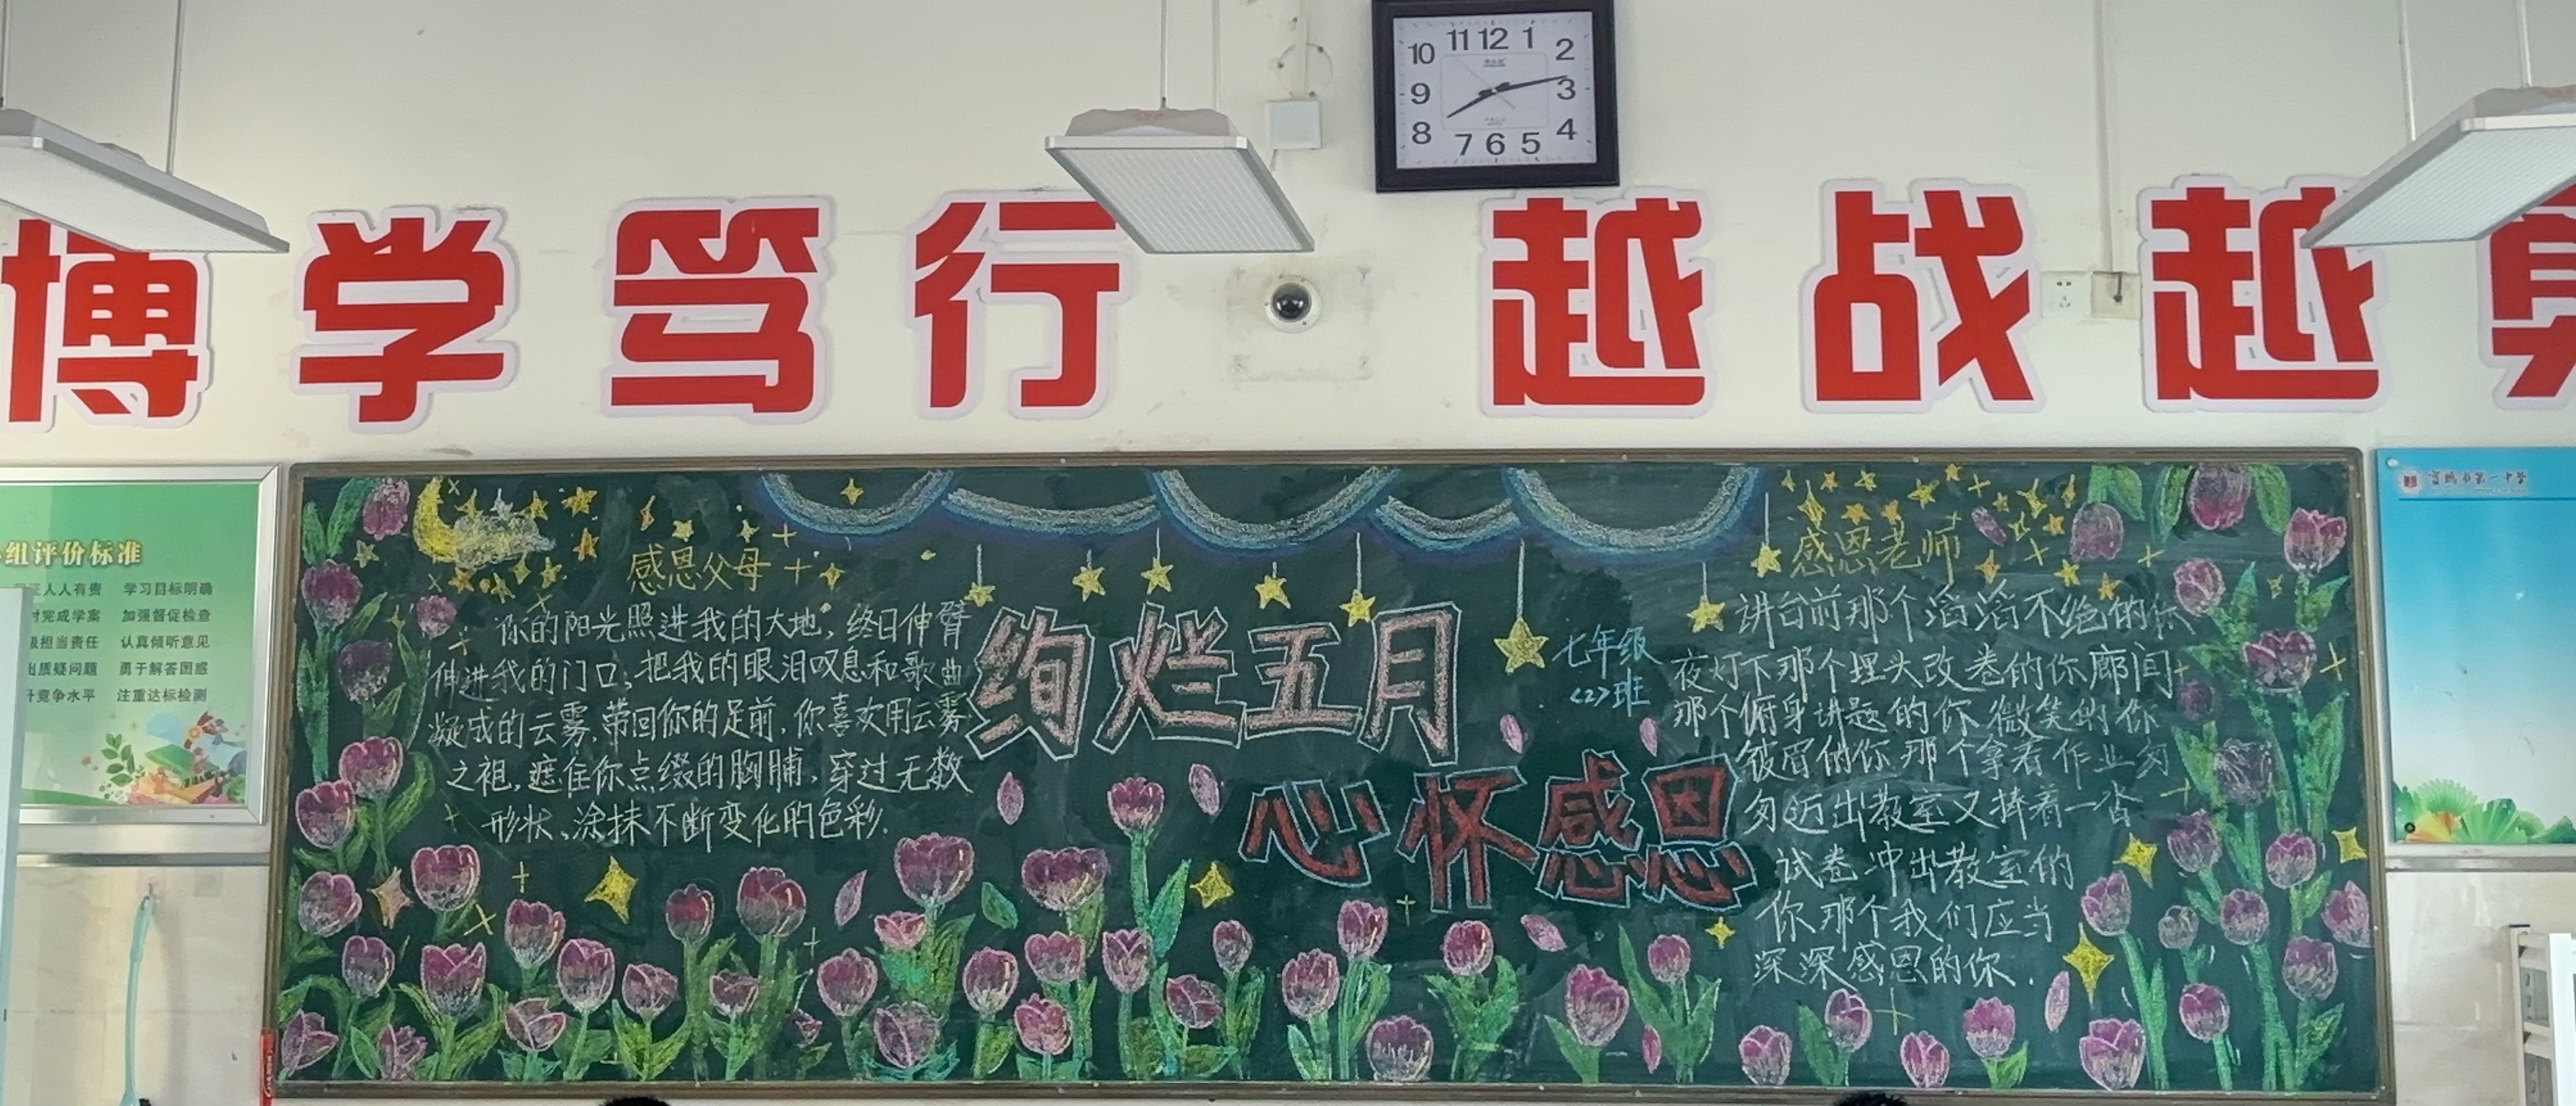 11 12 1
10 2
9 3
8 4
7 6 5
博学笃行 越战越勇
组评价标准
人人有责 学习目标明确
完成学案 加强督促检查
担当责任 认真倾听意见
出质疑问题 勇于解答困惑
竞争水平 注重达标检测
感恩父母
你的阳光照进我的大地,终日伸臂
伸进我的门口;把我的眼泪叹息和歌曲
凝成的云雾.带回你的足前,你喜欢用云雾
之袒,遮住你点缀的胸脯,穿过无数
形状、涂抹不断变化的色彩.
绚烂五月
心怀感恩
七年级
<2>班
感恩老师
讲台前那个滔滔不绝的你
夜灯下那个埋头改卷的你廊间
那个俯身讲题的你微笑的你
皱眉的你那个拿着作业匆
匆迈出教室又捧着一沓
试卷冲出教室的
你那个我们应当
深深感恩的你.
市第一中学